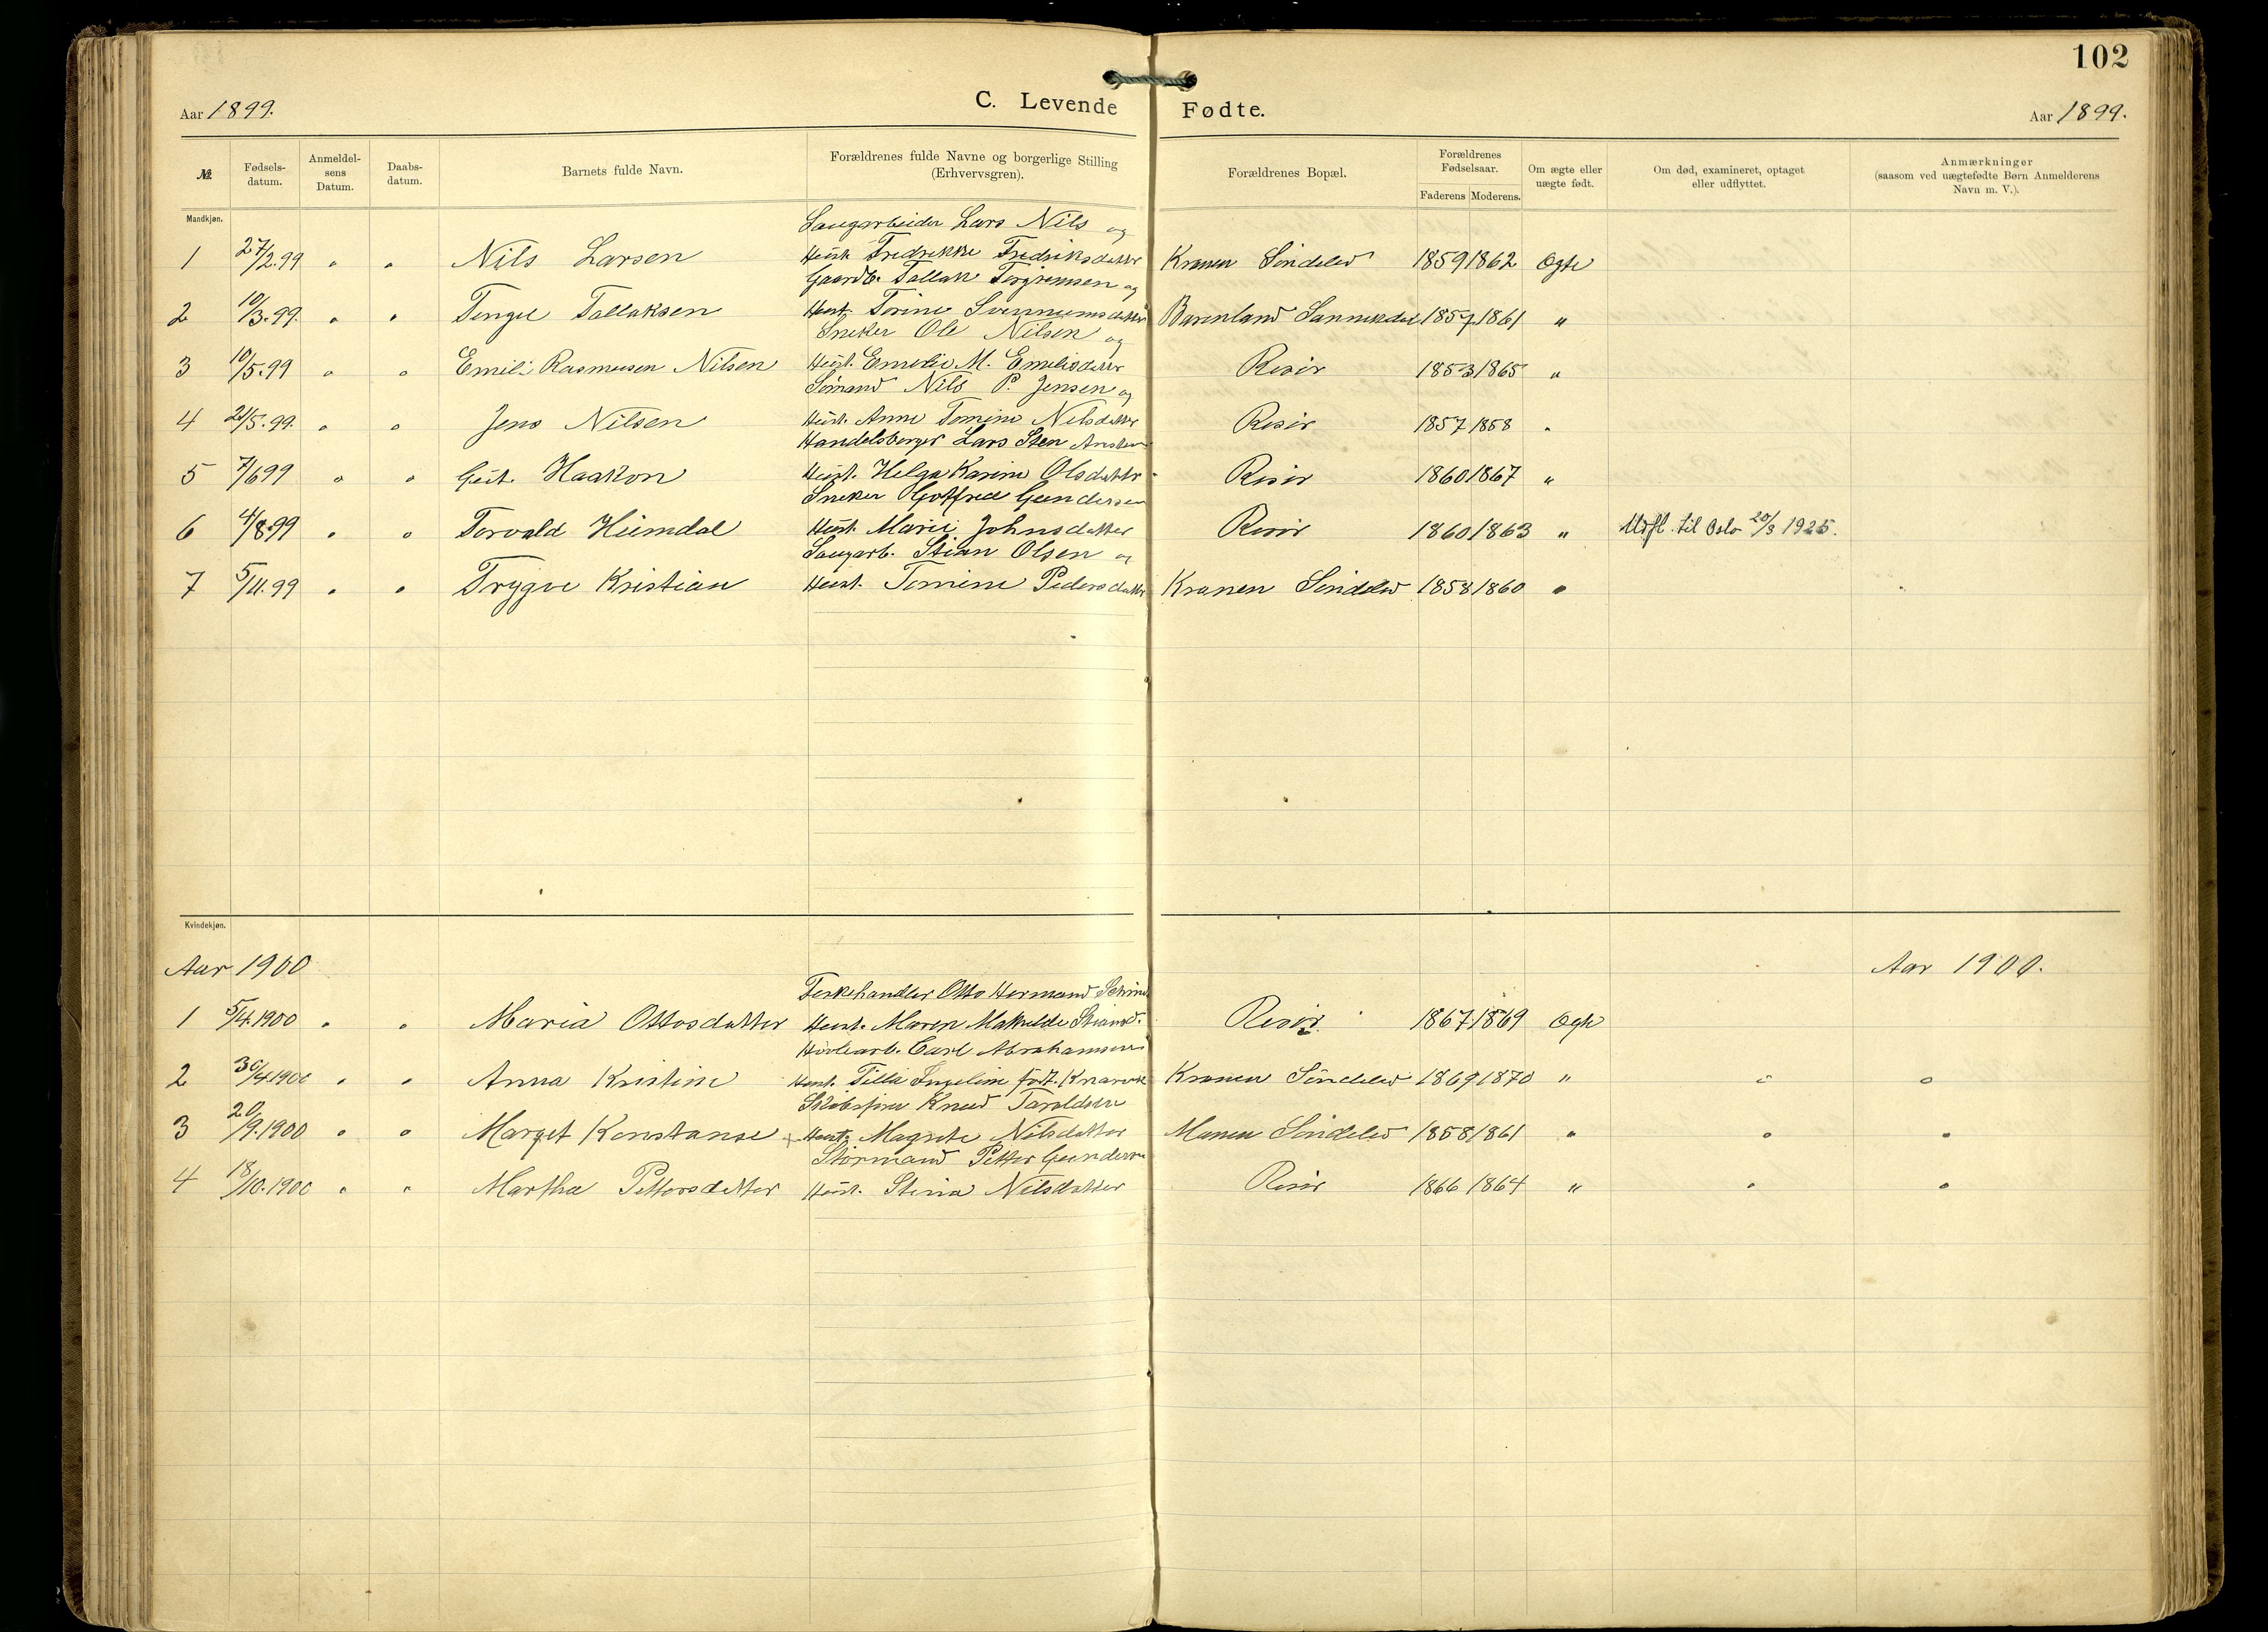 102
C. Levende Fødte.
Aar 1899. Aar 1899.
№ Fødselsdatum. Anmeldelsens Datum. Daabsdatum. Barnets fulde Navn. Forældrenes fulde Navne og borgerlige Stilling (Erhvervsgren). Forældrenes Bopæl. Forældrenes Fødselsaar. Faderens Moderens. Om ægte eller uægte født. Om død, examineret, optaget eller udflyttet. Anmærkninger (saasom ved uægtefødte Børn Anmelderens Navn m. V.).
Mandkjøn.
Saugarbeider Lars Nils og
1 27/2.99 " " Nils Larsen Hust. Fredrekke Fredriksdatter Kranen Söndeled 1859 1862 Ogte
Gaardb. Tallak Torgrimsen og
2 10/3.99. " " Tengel Tallaksen Hust. Torine Barenland Sannikedal 1857 1861 "
Sneker Ole Nilsen og
3 10/5.99 " " Emil Rasmusen Nilsen Hust. Emelie M. Emelisdatter Risör 1853 1865 "
Sömand Nils P. Jensen og
4 21/5.99. " " Jens Nilsen Hust. Anne Tomine Nilsdatter Risör 1857 1858 "
Handelsborger Lars Sten
5 7/6 99 " " Gut. Haakon Hust. Helga Karine Olsdatter Risör 1860 1867 "
Sneker Gotfred Gundersen
6 4/8.99 " " Torvald Heimdal Hust. Marie Johnsdatter Risör 1860 1863 " Udfl. til Oslo 20/3 1925.
Saugarb. Stian Olsen og
7 5/11.99 " " Trygve Kristian Hust. Tomine Pedersdatter Kranen Söndeled 1858 1860 "
Kvindekjøn.
Aar 1900 Aar 1900.
Feskehandler Otto Hermand
1 5/4.1900 " " Maria Ottosdatter Hust. Maren Mathilde Risör. 1867 1869 Ogte
Hövlearb. Carl Abrahamsen
2 30/4.1900 " " Anna Kristine Hust. Tilla Ingeline födt. Kranen Söndeled 1869 1870 " " "
Knud Taraldsen
3 20/9.1900 " " Marget Konstanse + Hust. Magrete Nilsdatter Söndeled 1858 1861 " " "
Störmand Petter Gundersen
4 18/10.1900 " " Martha Pettersdatter Hust. Stina Nilsdatter Risör 1866 1864 " " "